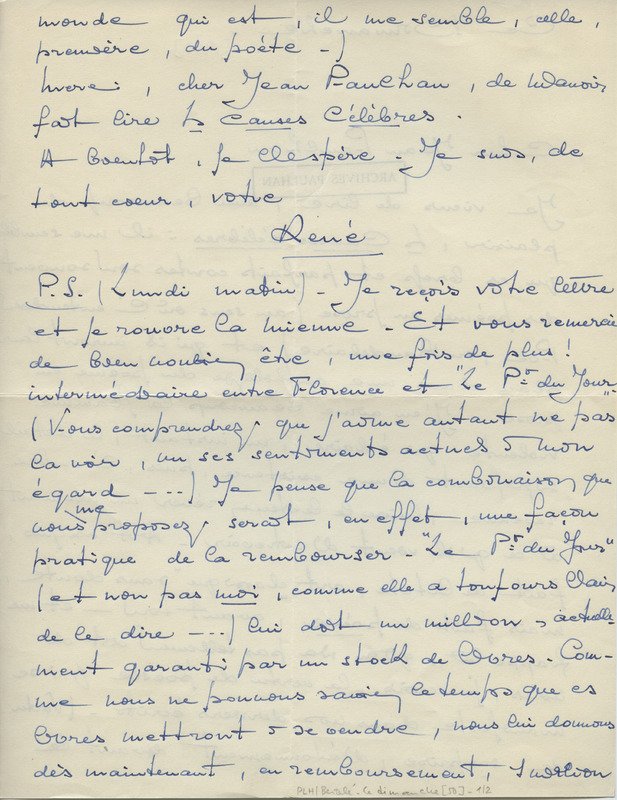 monde qui est, il me semble, celle,
première, du poéte -)
Merci, cher Jean Paulhan, de m'avoir
fait lire les Causes Célèbres.
A bientôt, je l'espère - Je suis, de
tout coeur, votre
René
P.S. (Lundi matin) - Je reçois votre lettre
et je rouvre la mienne - Et vous remercie
de bien vouloir être, une fois de plus !
intermédiaire entre Florence et "Le Pt du Jour"
(Vous comprendrez que j'aime autant ne pas
la voir, vu ses sentiments actuels à mon
égard ---) Je pense que la combinaison que
vous me proposez serait, en effet, une façon
pratique de la rembourser - "Le Pt du Jour"
(et non pas moi, comme elle a toujours l'air
de le dire ---) lui doit un million, actuelle-
ment garanti par un stock de livres - Com-
me nous ne pouvons savoir le temps que ces
livres mettront à se vendre, nous lui donnons
dès maintenant, en remboursement, 1 million
ARCHIVES PAULHAN
PLH/Bertelé - Ce dimanche [50] - 1/2